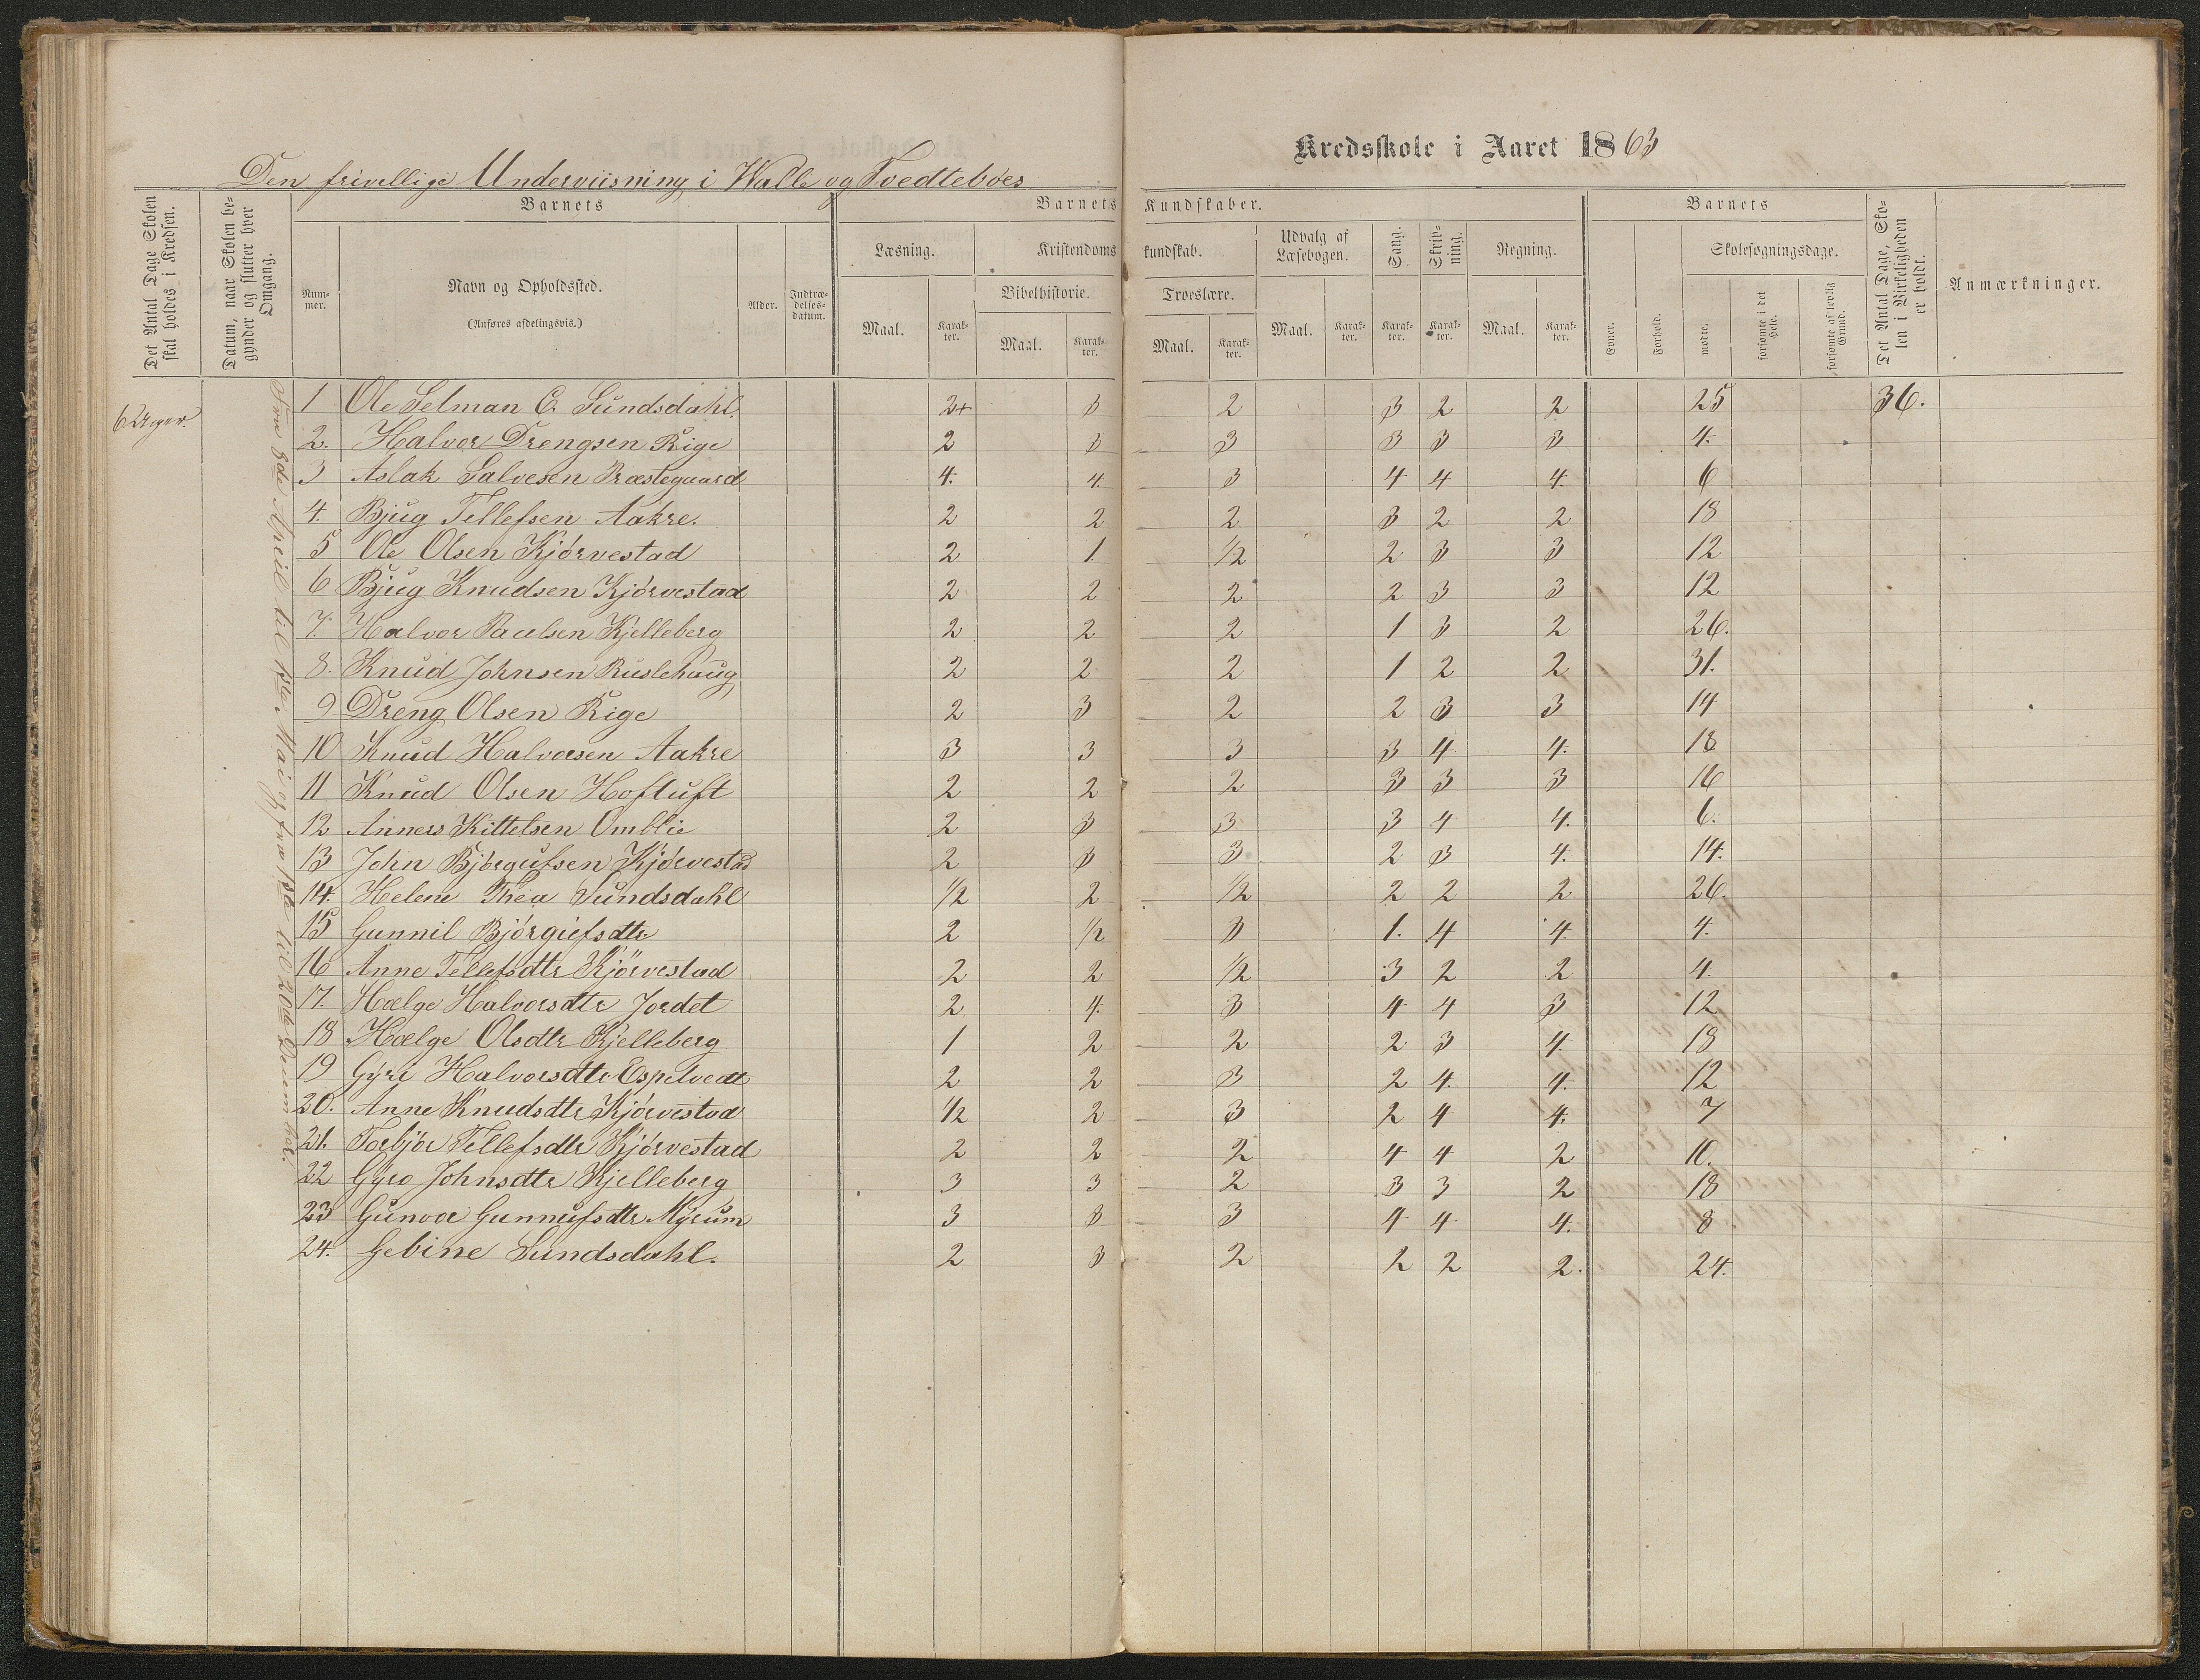 Den frivellige Underviisning i Walle og Tvedteböes
Kredsskole i Aaret 1863
Det Antal Dage Skolen skal holdes i Kredsen.
Datum, naar Skolen begynder og slutter hver Omgang.
Barnets
Barnets Kundskaber.
Barnets
Det Antal Dage, Skolen i Virkeligheden er holdt.
Anmærkninger.
Nummer.
Navn og Opholdssted.
(Anføres afdelingsvis.)
Alder.
Indtrædelsesdatum.
Læsning.
Kristendomskundskab.
Udvalg af Læsebogen.
Sang.
Skrivning.
Regning.
Evner.
Forhold.
Skolesøgningsdage.
Bibelhistorie.
Troeslære.
Maal. Karakter. Maal. Karakter. Maal. Karakter. Maal. Karakter. Karakter. Karakter. Maal. Karakter.
mødte. forsømte i det Hele. forsømte af lovlig Grund.
6 Uger.
Fra 8de April til 1ste Mai og fra 1ste til 20de December.
1 Ole Selman C. Sundsdahl. 2+ 3 2 3 2 2 25 36.
2. Halvor Drengsen Rige 2 3 3 3 3 3 4.
3 Aslak Salvesen Præstegaard 4. 4. 3 4 4 4. 6
4. Bjug Tellefsen Aakre. 2 2 2 3 2 2 18
5 Ole Olsen Kjörvestad 2 1. 1/2 2 3 3 12
6 Bjug Knudsen Kjörvestad 2 2 2 2 3 3 12
7. Halvor Paulsen Kjelleberg 2 2 2 1 3 2 26.
8. Knud Johnsen Ruslehaug 2 2 2 1 2 2 31.
9 Dreng Olsen Rige 2 3 2 2 3 3 14
10 Knud Halvorsen Aakre 3 3 3 3 4 4. 18
11 Knud Olsen Hoftuft 2 2 2 3 3 3 16
12 Anners Kittelsen Omblie 2 3 3 3 4 4. 6.
13 John Björgufsen Kjörvestad 2 3 3 2 3 4. 14.
14. Helene Thea Sundsdahl 1/2 2 1/2 2 2 2 26.
15 Gunnil Björgufsdtr 2 1/2 3 1. 4 4. 4.
16 Anne Tellefsdtr Kjörvestad 2 2 1/2 3 2 2 4.
17. Hælge Halvorsdtr Jordet 2 4. 3 4 4 3 12
18 Hælge Olsdtr Kjelleberg 1 2 2 2 3 4. 18
19 Gyre Halvorsdtr Espetvedt 2 2 3 2 4. 4. 12
20. Anne Knudsdtr Kjörvestad 1/2 2 3 2 4 4. 7
21. Torbjör Tellefsdtr Kjörvestad 2 2 2 4 4 2 10.
22 Gyro Johnsdtr Kjelleberg 3 3 2 3 3 2 18
23 Gunvor Gunnufsdtr Myrum 3 3 3 4 4 4. 8
24. Gebine Sundsdahl. 2 3 2 2 2 2. 24.